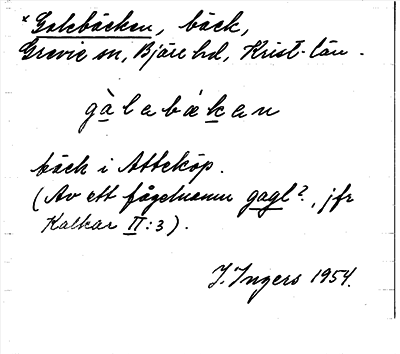 *Galebäcken, bäck,
Grevie sn, Bjäre hd, Krist. län.
gàlebǽken
bäck i Atteköp.
(Av ett fågelnamn gagl?, jfr
Kalkar II:3).
I. Ingers 1954.